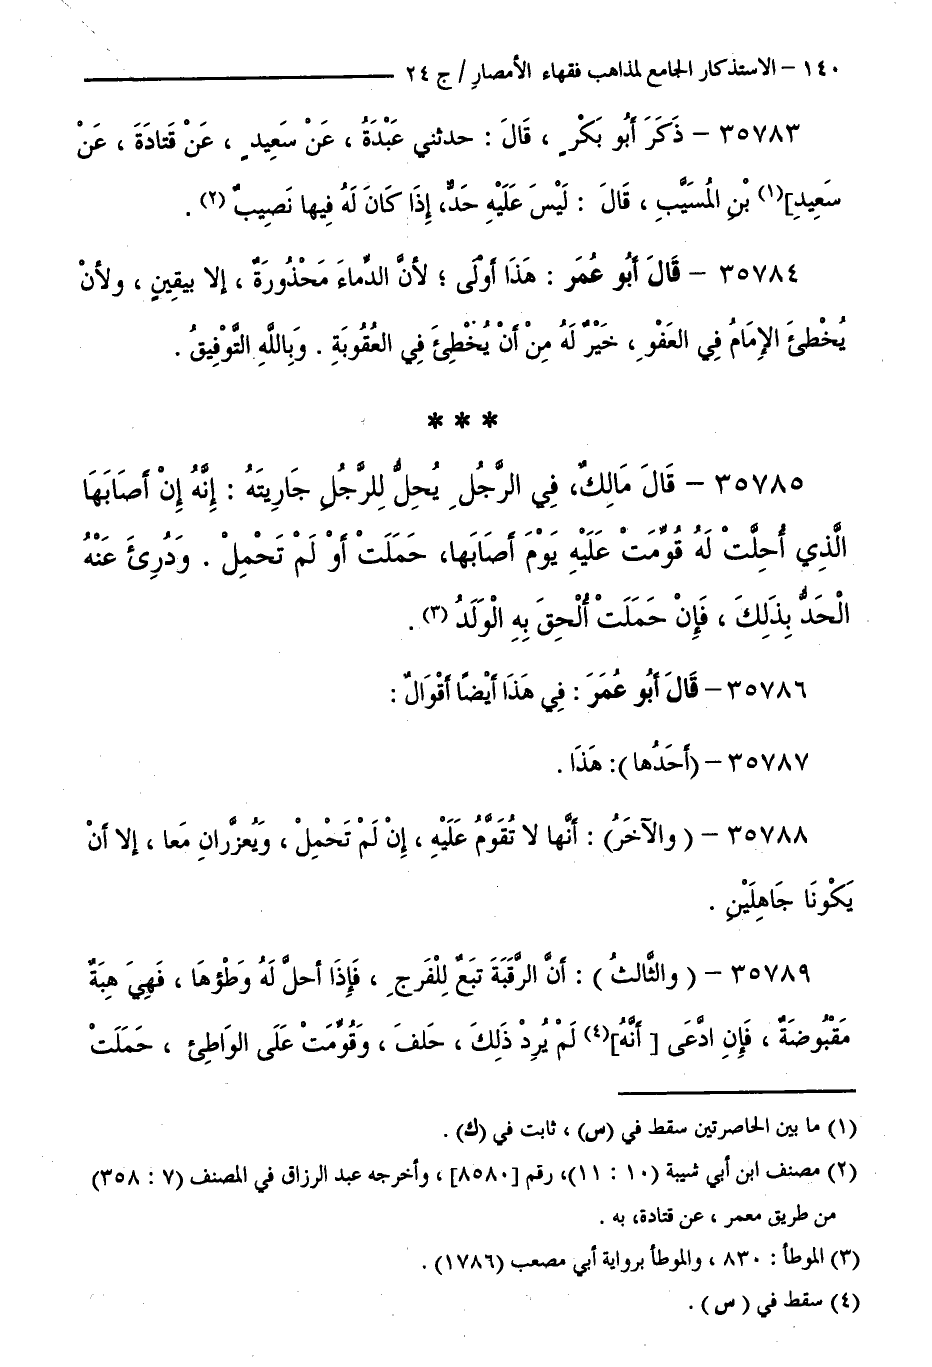 ١٤٠ – الاستذكار الجامع لمذاهب فقهاء الأمصارِ / ج ٢٤
٣٥٧٨٣ – ذَكَرَ أَبُو بَكْرٍ ، قَالَ : حدثني عَبْدَةُ ، عَنْ سَعِيدٍ ، عَنْ قَتَادَةَ ، عَنْ
سَعِيدِ](١) بْنِ المُسَيَّبِ ، قَالَ : لَيْسَ عَلَيْهِ حَدٌّ، إِذَا كَانَ لَهُ فِيها نَصِيبٌ (٢) .
٣٥٧٨٤ – قَالَ أَبُو عُمَر : هَذَا أَوْلَى ؛ لأنَّ الدِّماءَ مَحْذُورَةٌ ، إلا بيقِينٍ ، ولأنْ
يُخْطِئَ الإِمَامُ فِي العَفْوِ ، خَيْرٌ لَهُ مِنْ أَنْ يُخْطِئَ فِي العُقُوبَةِ . وَبِاللَّهِ التَّوْفِيقُ .
* * *
٣٥٧٨٥ – قَالَ مَالِكٌ، فِي الرَّجُلِ يُحِلُّ لِلرَّجُلِ جَارِيتَهُ : إِنَّهُ إِنْ أصَابَهَا
الَّذِي أُحِلَّتْ لَهُ قُوِّمَتْ عَلَيْهِ يَوْمَ أصَابَها، حَمَلَتْ أوْ لَمْ تَحْمِلْ . وَدُرِئَ عَنْهُ
الْحَدُّ بِذَلِكَ ، فَإِنْ حَمَلَتْ أُلْحِقَ بِهِ الْوَلَدُ (٣) .
٣٥٧٨٦ – قَالَ أَبُو عُمَرَ : فِي هَذَا أيْضًا أقْوَالٌ :
٣٥٧٨٧ – (أحَدُها ): هَذَا .
٣٥٧٨٨ – ( والآخَرُ) : أنَّها لا تُقَوَّمُ عَلَيْهِ ، إنْ لَمْ تَحْمِلْ ، وَيُعزَّرانِ مَعا ، إلا أنْ
يَكُونَا جَاهِلَيْنِ .
٣٥٧٨٩ – ( والثَّالثُ ) : أنَّ الرَّقَبَةَ تبَعٌ لِلْفَرجِ ، فَإِذَا أحلَّ لَهُ وَطْؤهَا ، فَهِيَ هِبَةٌ
مَقْبُوضَةٌ ، فَإِنِ ادَّعَى [ أنَّهُ](٤) لَمْ يُرِدْ ذَلِكَ ، حَلفَ ، وَقُوِّمَتْ عَلَى الوَاطِئ ، حَمَلَتْ
(١) ما بين الحاصرتين سقط في (س) ، ثابت في (ك) .
(٢) مصنف ابن أبي شيبة (١٠ : ١١)، رقم [٨٥٨٠] ، وأخرجه عبد الرزاق في المصنف (٧ : ٣٥٨)
من طريق معمر ، عن قتادة، به .
(٣) الموطأ : ٨٣٠ ، والموطأ برواية أبي مصعب (١٧٨٦) .
(٤) سقط في ( س ) .